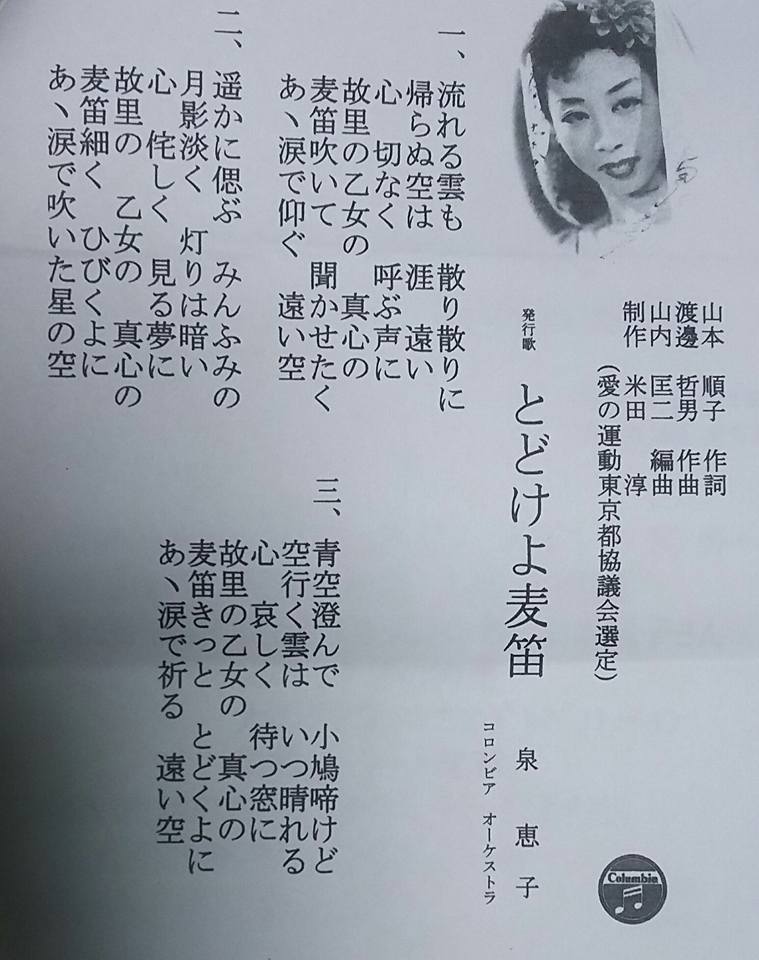 山本 順子 作詞
渡邊 哲男 作曲
山内 匡二 編曲
制作 米田 淳
(愛の運動東京都協議会選定)
発行歌 とどけよ麦笛 泉 恵子
コロンビア オーケストラ
一、流れる雲も 散り散りに
帰らぬ空は 涯 遠い
心 切なく 呼ぶ声に
故里の乙女の 真心の
麦笛吹いて 聞かせたく
あヽ涙で仰ぐ 遠い空
二、遥かに偲ぶ みんふみの
月影淡く 灯りは暗い
心 侘しく 見る夢に
故里の 乙女の 真心の
麦笛細く ひびくよに
あヽ涙で吹いた星の空
三、青空澄んで 小鳩啼けど
空行く雲は いつ晴れる
心 哀しく 待つ窓に
故里の乙女の 真心の
麦笛きっと とどくよに
あヽ涙で祈る 遠い空
Columbia